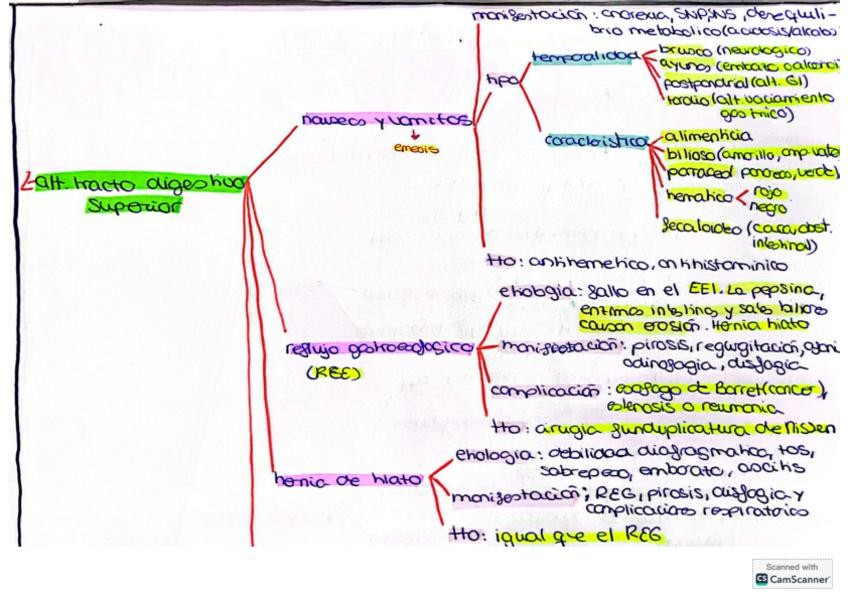 manifestación: anorexia, SNP,SNS, desequili-
brio metabolico (acidosis/alcalo
tipo
temporalidad
brusco (neurologico)
ayunos (embarazo o alcohol
postpondrial (alt. GI)
tardio (alt. vaciamiento
gastrico)
nauseas y vomitos
emesis
caracteristica
alimenticia
bilioso (amarillo, amp. vater
porraced pancreas, verde)
hematico
rojo
negro
fecaloideo (caca, obst.
intestinal)
tto: antihemetico, antihistaminico
alt. tracto digestivo
superior
etiologia: fallo en el EEI. La pepsina,
entimas intestino y sales biliares
causan erosión. Hernia hiato
reflujo gastroesofagico
(REE)
manifestación: pirosis, regurgitación,
odinofagia, disfagia
complicación: esofago de Barret(cancer),
estenosis o neumonia
tto: cirugia funduplicatura de Nissen
hernia de hiato
etiologia: debilidad diafragmatica, tos,
sobrepeso, embarazo, ascitis
manifestación; REG, pirosis, disfagia y
complicaciones respiratorios
tto: igual que el REG
Scanned with
CS CamScanner